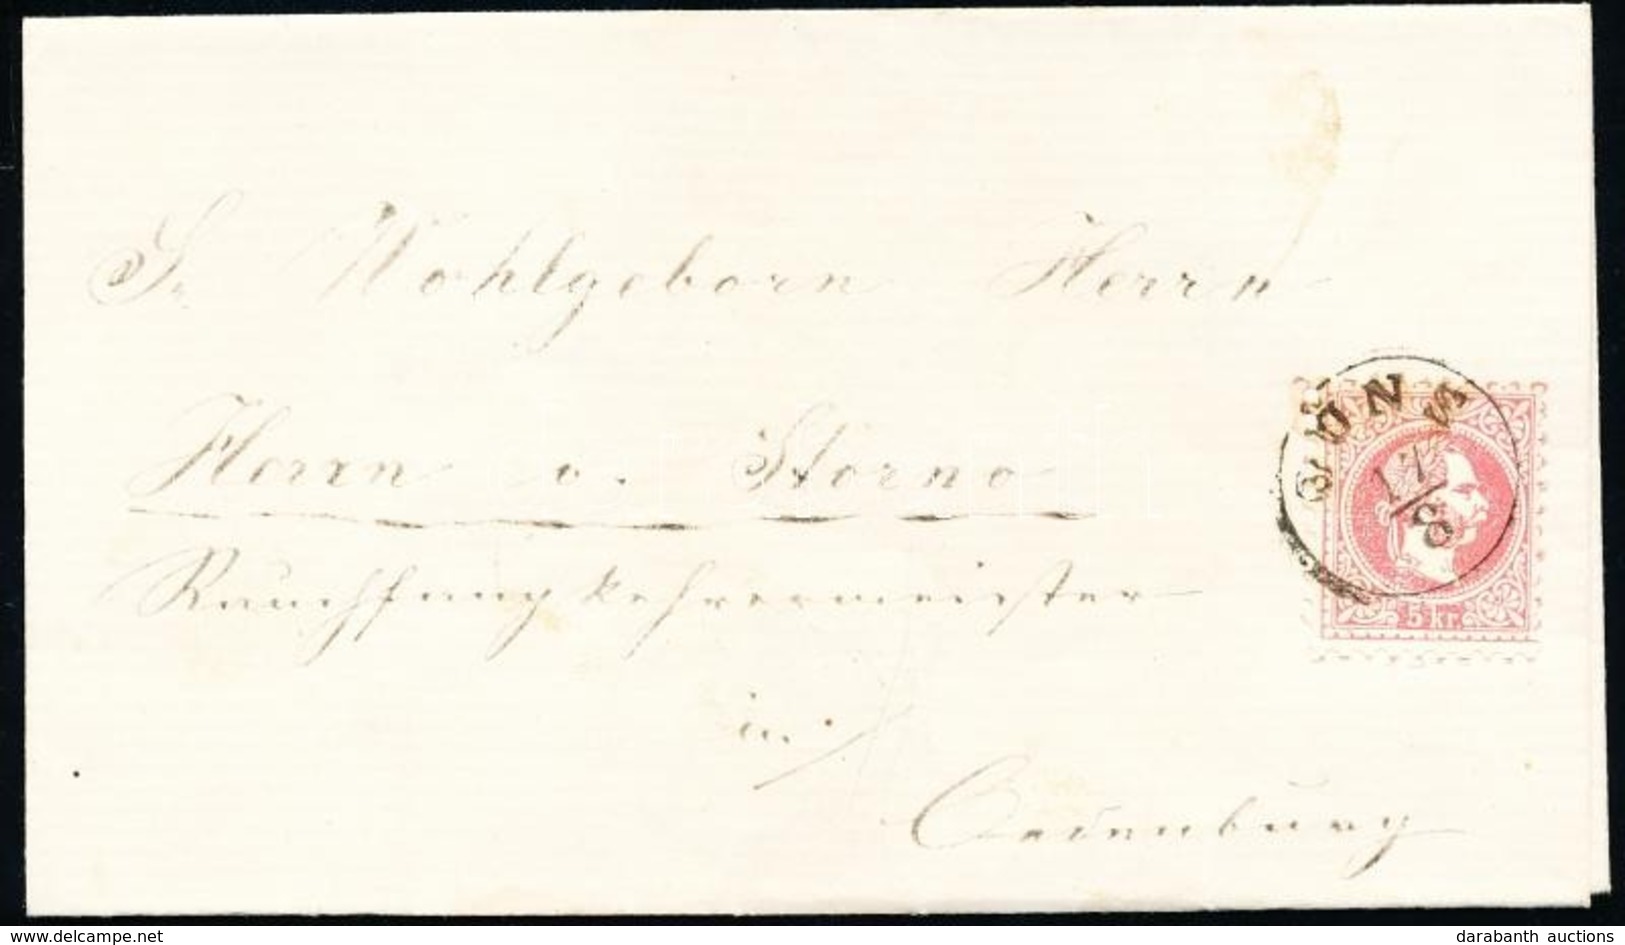 Sr. Wohlgeborn Herrn
Herrn v. Storno
Rauchfangkehrermeister
in
Oedenburg
GÜNS
17/8
5 kr.
delcampe.net
darabanth auctions